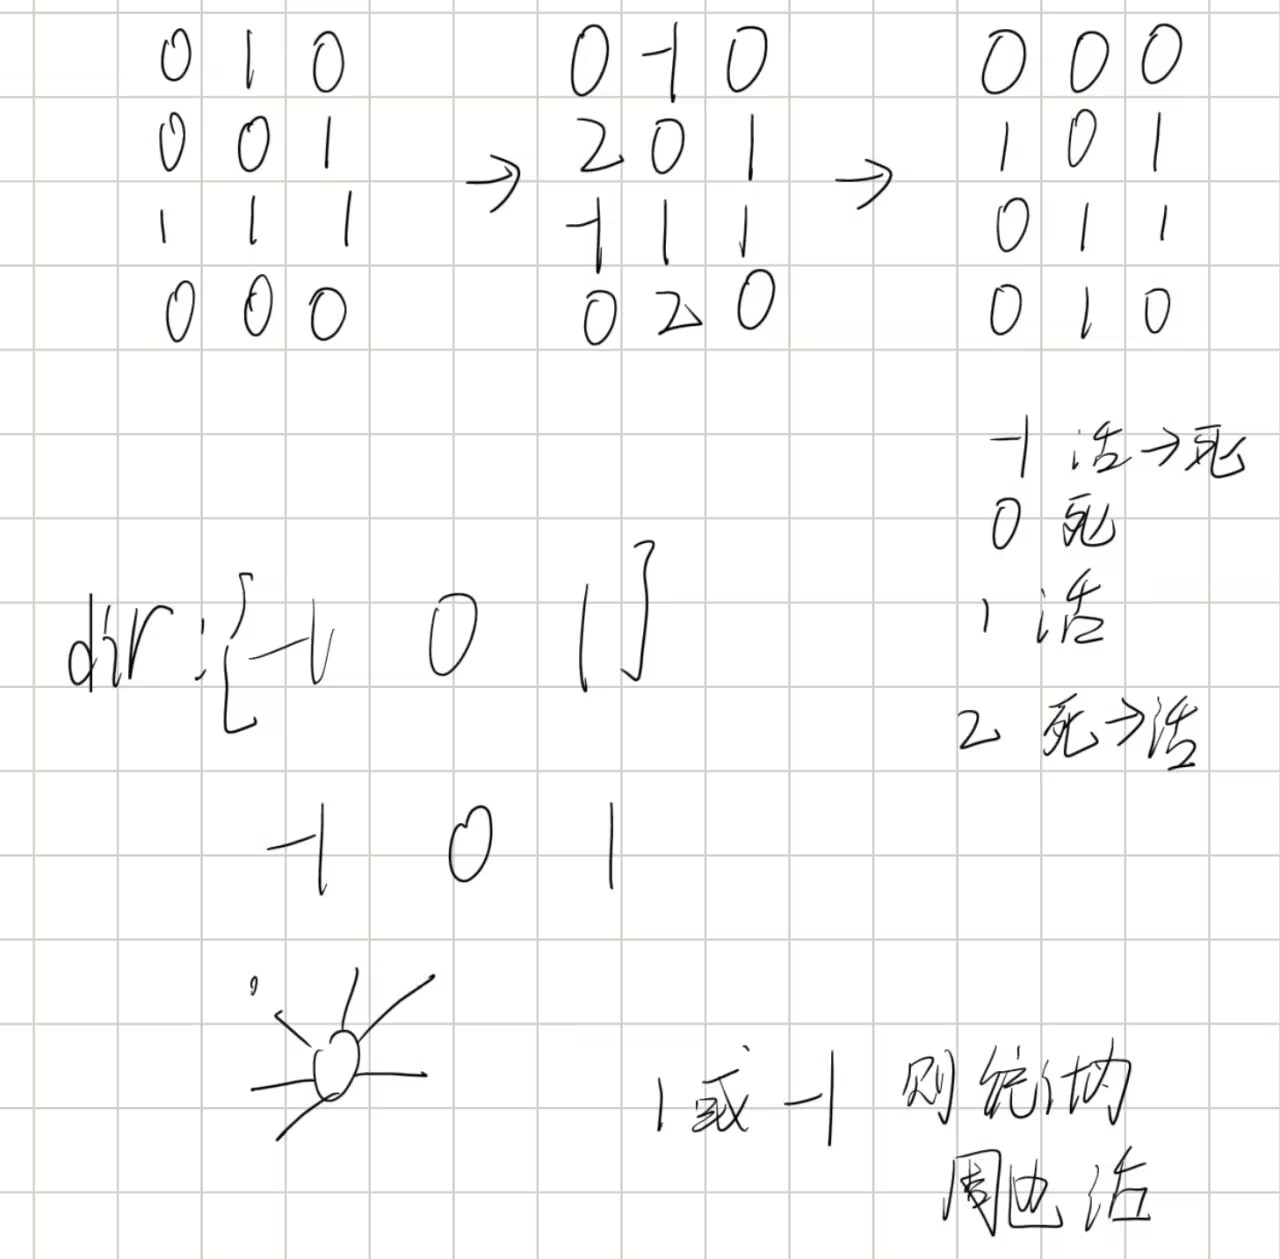 0 1 0 0 -1 0 0 0 0
0 0 1 → 2 0 1 → 1 0 1
1 1 1 -1 1 1 0 1 1
0 0 0 0 2 0 0 1 0
-1 活→死
0 死
1 活
2 死→活
dir:[-1 0 1]
-1 0 1
1或-1 则统计为
周边活